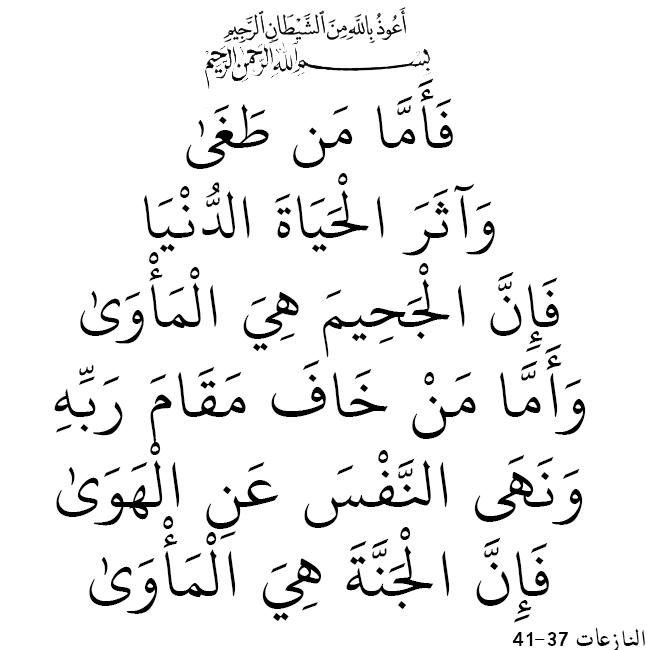 أَعُوذُ بِاللَّهِ مِنَ ٱلشَّيْطَانِ ٱلرَّجِيمِ
بِسْمِ اللهِ الرَّحْمٰنِ الرَّحِيمِ
فَأَمَّا مَن طَغَىٰ
وَآثَرَ الْحَيَاةَ الدُّنْيَا
فَإِنَّ الْجَحِيمَ هِيَ الْمَأْوَىٰ
وَأَمَّا مَنْ خَافَ مَقَامَ رَبِّهِ
وَنَهَى النَّفْسَ عَنِ الْهَوَىٰ
فَإِنَّ الْجَنَّةَ هِيَ الْمَأْوَىٰ
النازعات 37-41